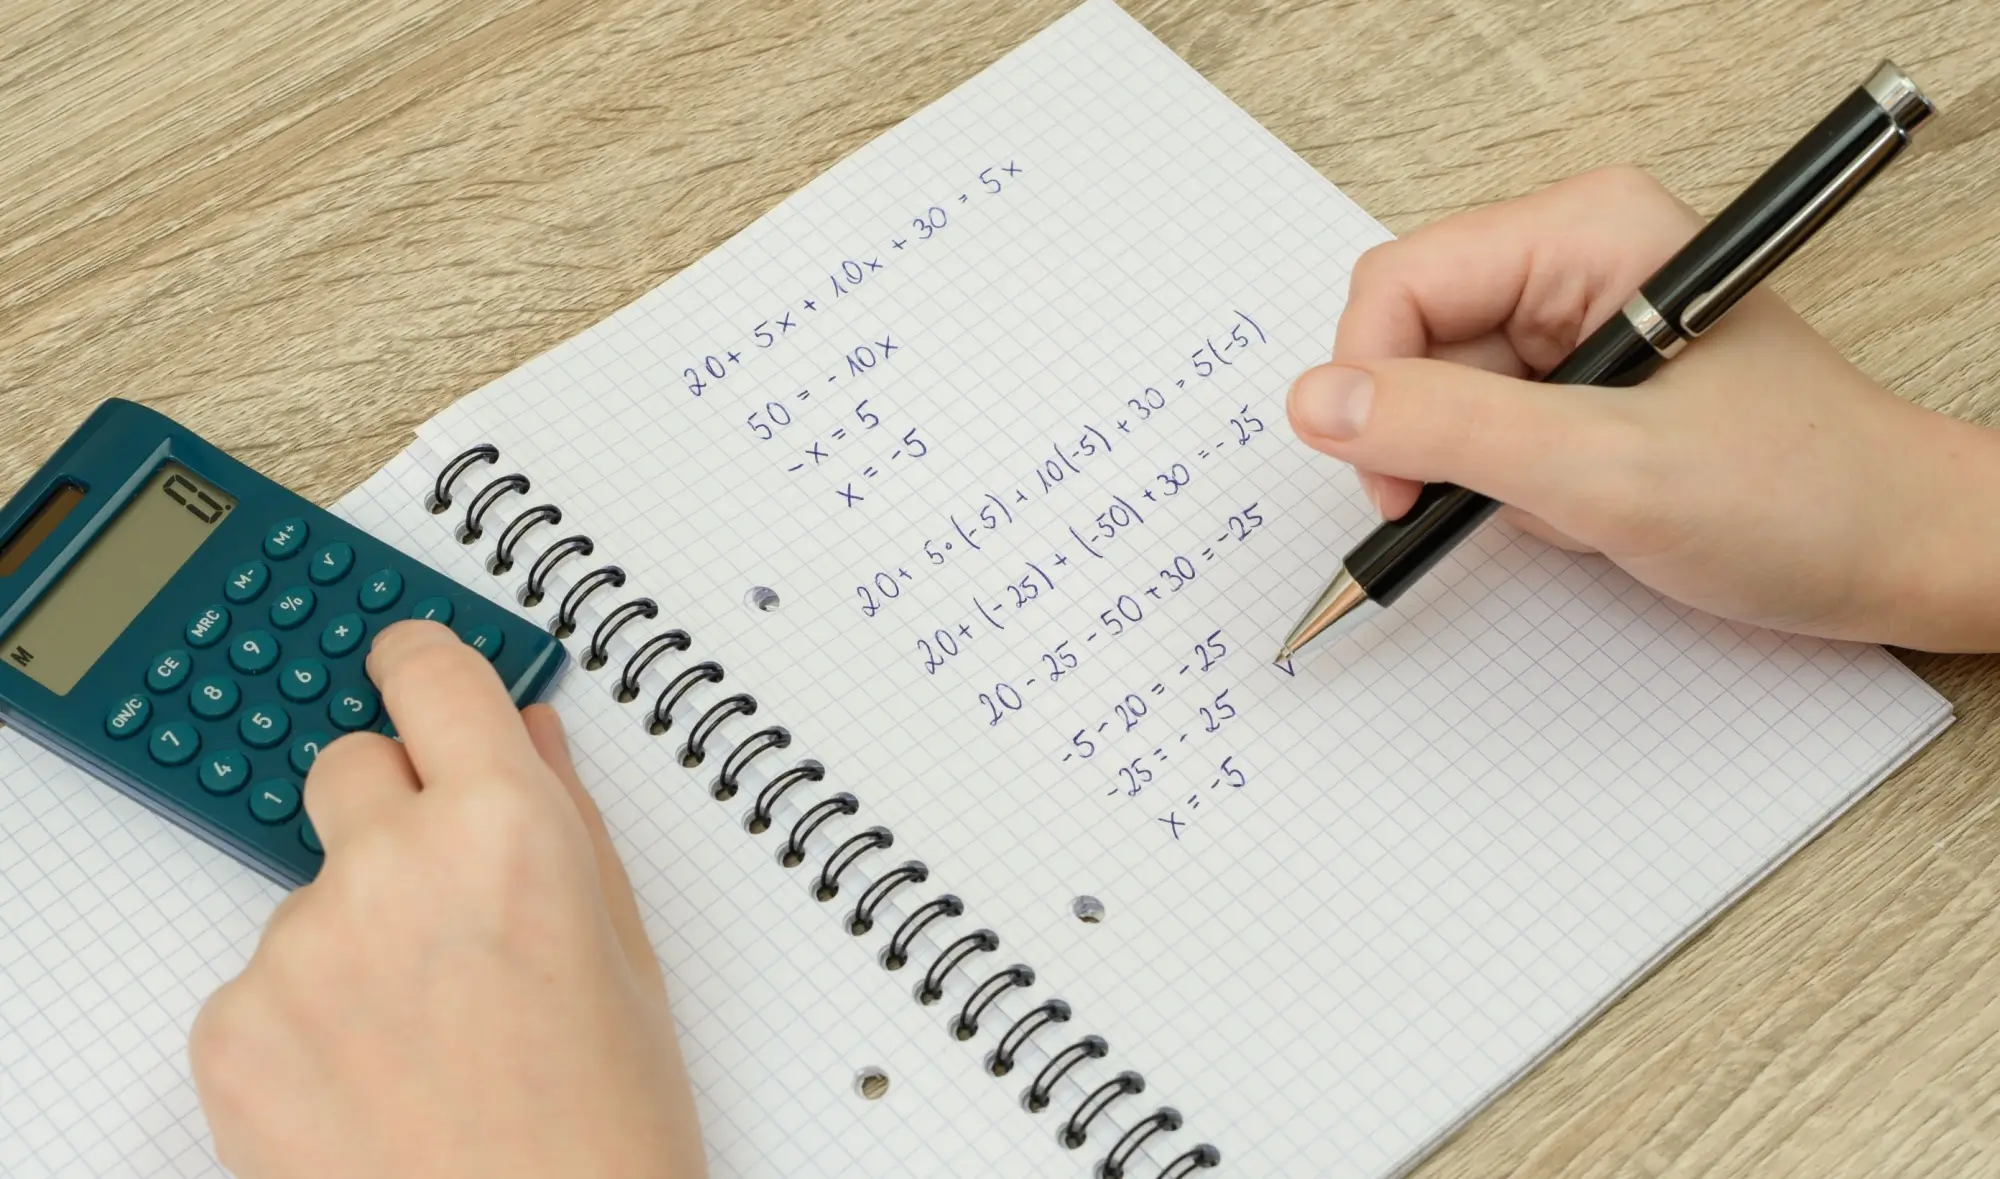 20 + 5x + 10x + 30 = 5x
50 = - 10x
-x = 5
x = -5
20 + 5·(-5) + 10(-5) + 30 = 5(-5)
20 + (-25) + (-50) + 30 = -25
20 - 25 - 50 + 30 = -25
-5 - 20 = -25
-25 = -25
x = -5
0.
M
M+
M- √
MRC % ÷
CE 9 × -
ON/C 8 6 =
7 5 3
4 2
1